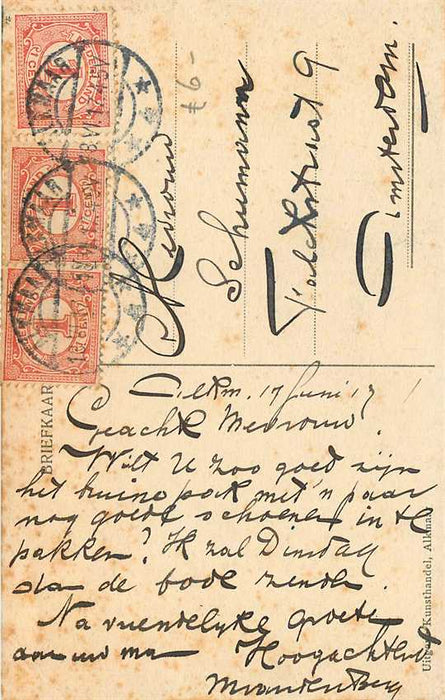 Mevrouw
Schumann
Falckstraat 9
Amsterdam.
f 6-
NEDERLAND
1 CENT
1
ALKMAAR
BRIEFKAAR
Alkm. 17 Juni 17
Geachte Mevrouw.
Wilt U zoo goed zijn
het bruine pak met 'n paar
nog goede schoenen in te
pakken? Ik zal Dinsdag
dan de bode zenden.
Na vriendelijke groete
aan uw ma Hoogachtend
M van den Berg
Kunsthandel, Alkmaa